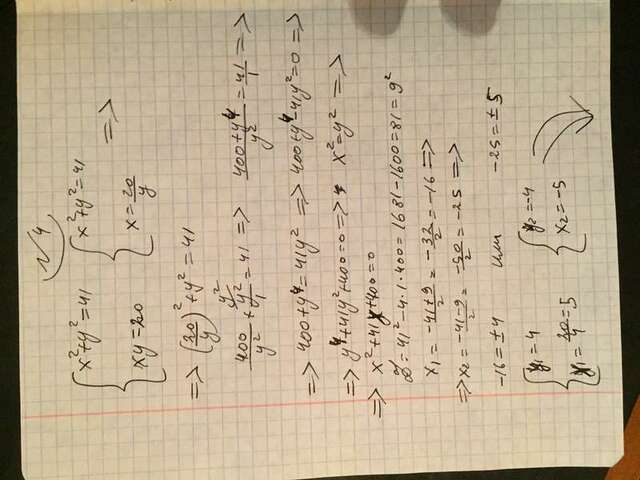 №4
{ x²+y²=41 { x²+y²=41 =>
xy=20 x=20/y
=> (20/y)²+y²=41
400/y² + y²/1 = 41 => (400+y⁴)/y² = 41/1 =>
=> 400+y⁴=41y² => 400+y⁴-41y²=0 =>
=> y⁴+41y²+400=0 => x²=y² =>
=> x²+41x+400=0
D=41²-4·1·400=1681-1600=81=9²
x₁=(-41+9)/2=-32/2=-16 =>
=> x₂=(-41-9)/2=-50/2=-25 =>
-16=±4 или -25=±5
{ y₁=4 { y₂=-4
x₁=20/4=5 x₂=-5